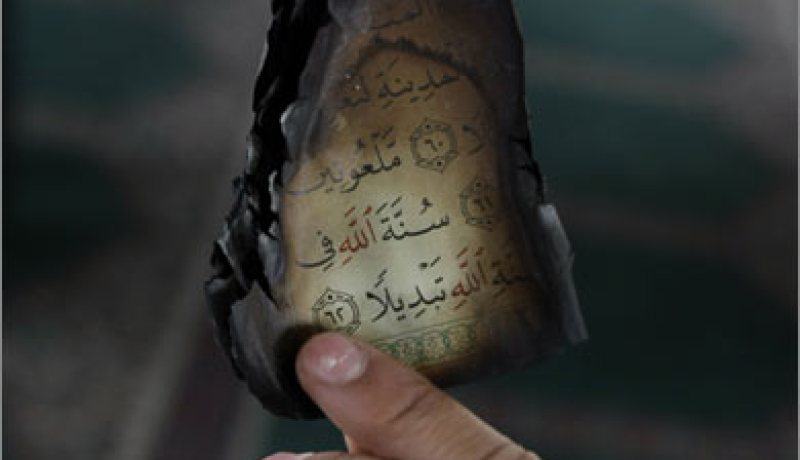 لْمَدِينَةِ لَنُغْ
لًا ٦٠ مَّلْعُونِينَ
٦١ سُنَّةَ ٱللَّهِ فِي
نَّةِ ٱللَّهِ تَبْدِيلًا ٦٢